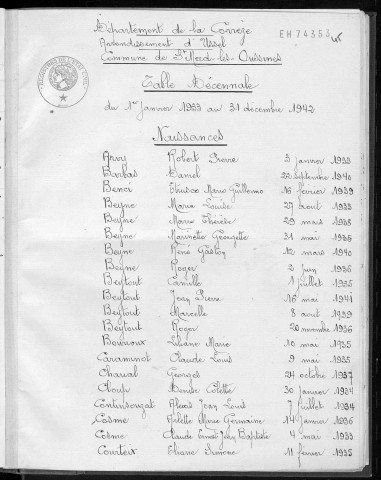 Département de la Corrèze
EH 74353
Arrondissement d'Ussel
Commune de St Merd-les-Oussines
Table Décennale
du 1er Janvier 1933 au 31 décembre 1942
Naissances
Robert Pierre 3 Janvier 1933
Barbas Daniel 22 Septembre 1940
Benci Mario Guillermo 16 février 1939
Beyne Marie Louise 27 août 1933
Beyne Marie Thérèse 29 mars 1935
Beyne Marinette Georgette 31 mai 1935
Beyne René Gaston 12 mars 1940
Beyne Roger 2 juin 1936
Beytout Camille 1 juillet 1935
Beytout Jean Pierre 16 mai 1941
Beytout Marcelle 8 août 1939
Beytout Roger 20 novembre 1936
Liliane Marie 10 mai 1935
Caraminot Claude Louis 9 mai 1935
Georges 24 octobre 1937
Cloup Denise Colette 30 Janvier 1934
Continsouzat Alexis Jean Louis 7 juillet 1934
Cosme Arlette Marie Germaine 14 Janvier 1936
Cosme Claude Ernest Jean Baptiste 4 mai 1933
Courteix Eliane Simone 11 février 1935